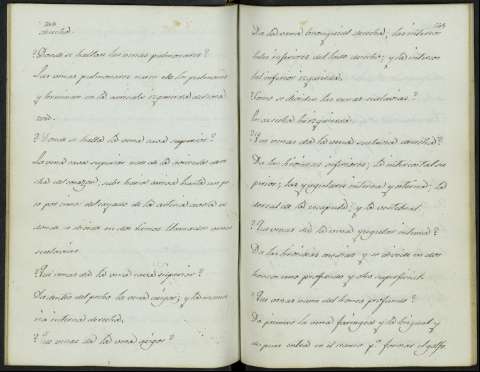 244
derecha.
? Donde se hallan las venas pulmonares?
Las venas pulmonares nacen de los pulmones
y terminan en la auricula izquierda del cora
zon.
? Donde se halla la vena cava superior?
La vena cava superior nace de la auricula dere
cha del corazon, sube hacia arriba hasta un po
co por cima del cayado de la arteria aorta en
donde se divide en dos troncos llamados venas
subclavias.
? Que venas dá la vena cava superior?
Da dentro del pecho la vena azigos; y la mama
ria interna derecha.
? Que venas da la vena azigos?
245
Da la vena bronquial derecha; las interco
tales inferiores del lado derecho; y la interco
tal inferior izquierda.
? Como se dividen las venas subclavias?
En derecha é izquierda.
? Que venas dá la vena subclavia derecha?
Da las tiroideas inferiores; la intercostal su
perior; las yugulares interna y esterna; la
dorsal de la escapula; y la vertebral.
? Que venas dá la vena yugular interna?
Da las tiroideas medias y se divide en dos
troncos uno profundo y otro superficial.
? Que venas nacen del tronco profundo?
Da primero la vena faringea y la lingual y
despues entra en el craneo pª formar el golfo